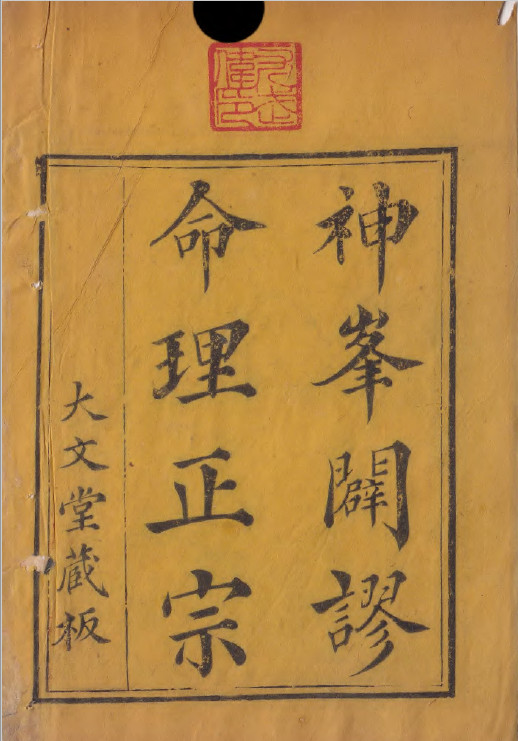 神峯闢謬
命理正宗
大文堂蔵板